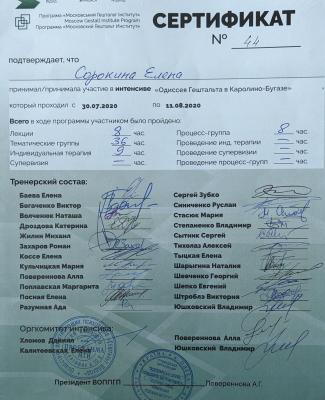 Программа «Московский Гештальт Институт»
Moscow Gestalt Institute Program
Программа «Московский Гештальт Институт»
СЕРТИФИКАТ
№ 44
подтверждает, что
Сорокина Елена
принимал/принимала участие в интенсиве «Одиссея Гештальта в Каролино-Бугазе»
который проходил с 30.07.2020 по 11.08.2020
Всего в ходе программы участником было пройдено:
Лекции 8 час. Процесс-группа 8 час.
Тематические группы 36 час. Проведение инд. терапии — час.
Индивидуальная терапия 9 час. Проведение супервизии — час.
Супервизия — час. Проведение процесс-групп — час.
Тренерский состав:
Баева Елена Сергей Зубко
Богаченко Виктор Синиченко Руслан
Волченок Наташа Стасюк Мария
Дроздова Катерина Степаненко Владимир
Жилин Михаил Сытник Сергей
Захаров Роман Тихолаз Алексей
Коссе Елена Тыцкая Елена
Кульчицкая Мария Шарыгина Наталия
Поверennова Алла Шевченко Георгий
Поплавская Маргарита Шепко Евгений
Посная Елена Штроблэ Виктория
Разумная Ада Юшковский Владимир
Оргкомитет интенсива:
Хломов Даниил Повереннова Алла
Калитеевская Елена Юшковский Владимир
Президент ВОППГП Повереннова А.Г.